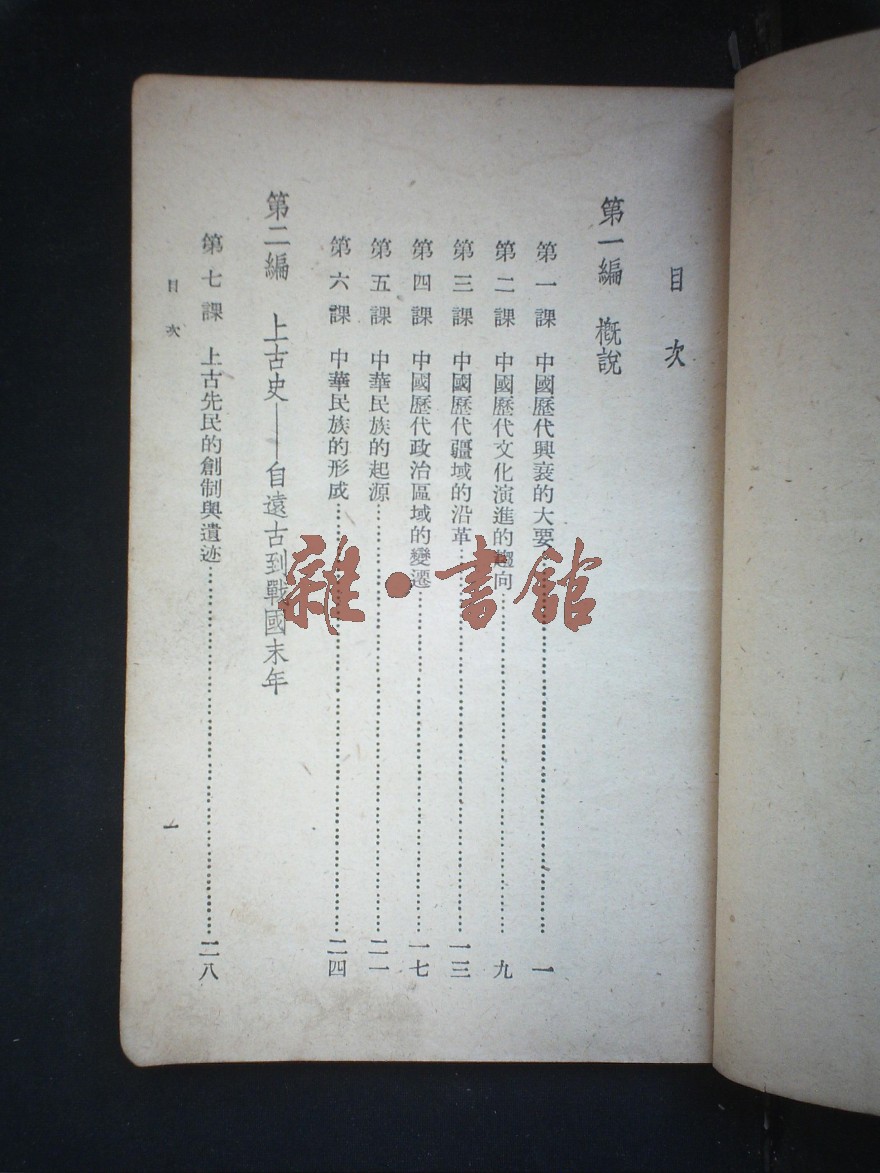 目次
第一編 概說
第一課 中國歷代興衰的大要……一
第二課 中國歷代文化演進的趨向……九
第三課 中國歷代疆域的沿革……一三
第四課 中國歷代政治區域的變遷……一七
第五課 中華民族的起源……二一
第六課 中華民族的形成……二四
第二編 上古史——自遠古到戰國末年
第七課 上古先民的創制與遺迹……二八
目次 一
雜·書館